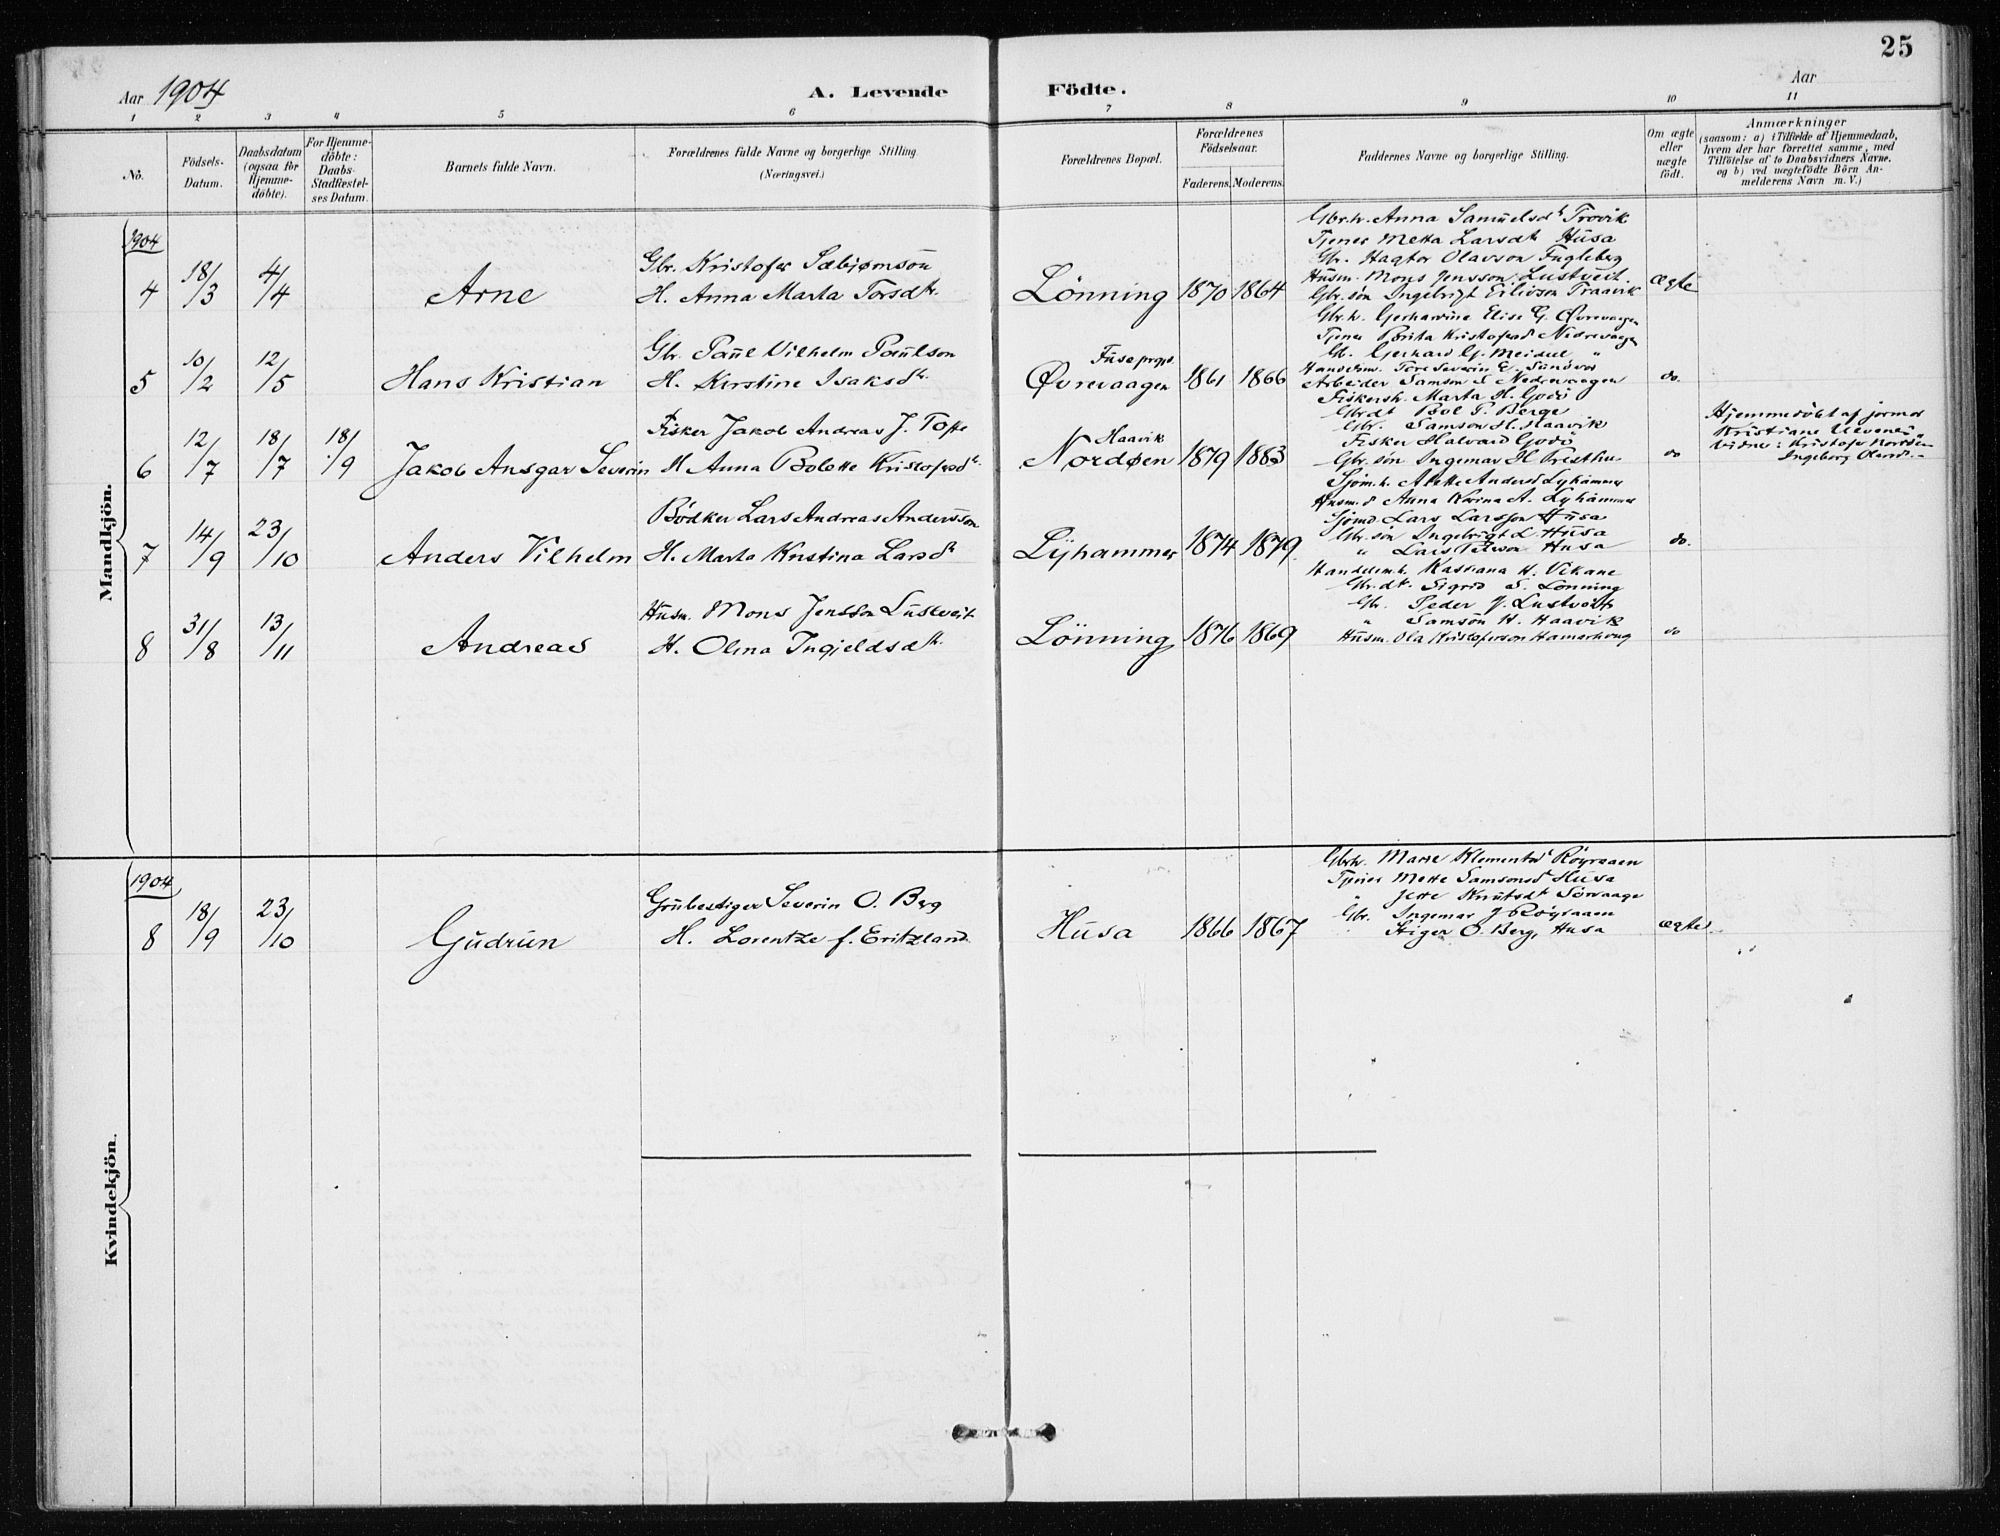 25
Aar 1904
A. Levende Födte.
Aar
1 2 3 4 5 6 7 8 9 10 11
No.
Födsels-Datum.
Daabsdatum (ogsaa for Hjemme-döbte).
For Hjemme-döbte: Daabs-Stadfæstel-ses Datum.
Barnets fulde Navn.
Forældrenes fulde Navne og borgerlige Stilling. (Næringsvei.)
Forældrenes Bopæl.
Forældrenes Födselsaar.
Faderens. Moderens.
Faddernes Navne og borgerlige Stilling.
Om ægte eller uægte födt.
Anmærkninger
(saasom: a) i Tilfælde af Hjemmedaab, hvem der har forrettet samme, med Tilföielse af to Daabsvidners Navne, og b) ved uægtefödte Börn An-melderens Navn m. V.)
Mandkjön.
1904
4 18/3 4/4 Arne
Gbr. Kristofer Sæbjørnson
H. Anna Marta Torsdtr.
Lönning 1870 1864
Gbr.h. Anna Samuelsdt Trovik
Tjener Metta Larsdt Husa
Gbr. Hagtor Olavson Fugleberg
Husm. Mons Jensson Lustveit
Gbr. søn Ingebrigt Eilivson Traavik
Ægte
5 10/2 12/5 Hans Kristian
Gbr. Paul Vilhelm Paulson
H. Kirstine Isaksdtr.
Fusa prgjd.
Øvrevaagen 1861 1866
Gbr.h. Gerhardine Elise G. Øvrevaagen
Tjener Brita Kristofersd Nedrevaagen
Gbr. Gerhard G. Meidell "
Handelsm. Tore Severin E. Sundvor
Arbeider Samson S Nedrevaagen
do.
6 12/7 18/7 18/9 Jakob Ansgar Severin
Fisker Jakob Andreas J. Tofte
H Anna Bolette Kristofersdtr.
Haavik
Nordøen 1879 1883
Fiskerh. Marta H. Godö
Gbr.dt Bol T. Berge
Gbr. Samson H. Haavik
Fisker Halvard Godö
Gbr. søn Ingemar H Presthu
do
Hjemmedøbt af jormor
Kristiane
Vidner: Kristofer Nordöen
Ingeborg Olavsdt.
7 14/9 23/10 Anders Vilhelm
Bødker Lars Andreas Andersson
H. Marta Kristina Larsdtr
Lyhammer 1874 1879
Sjöm.h. Anders Lyhammer
Husm.d Anna Karina A. Lyhammer
Sjömd Lars Larsson Husa
Gbr. søn Ingebrigt L. Husa
" Lars Peterson Husa
do.
8 31/8 13/11 Andreas
Husm. Mons Jensson Lustveit
H. Olina Ingjeldsdtr.
Lönning 1876 1869
Handelsm.h. Kastiana H. Vikane
Gbr.dt. Sigrid S. Lönning
Gbr. Peder J. Lustveit
" Samson H. Haavik
Husm. Ola Kristoferson Hamarhaug
do
Kvindekjön.
1904
8 18/9 23/10 Gudrun
Grubestiger Severin O. Berg
H. Lorentze f. Eritzland
Husa 1866 1867
Gbr.h. Marie Klementsd Röyraaen
Tjener Mette Samsonsd Husa
" Jette Knutsdt Sörvaage
Gbr. Ingemar J Röyraaen
Stiger O. Berg, Husa
ægte